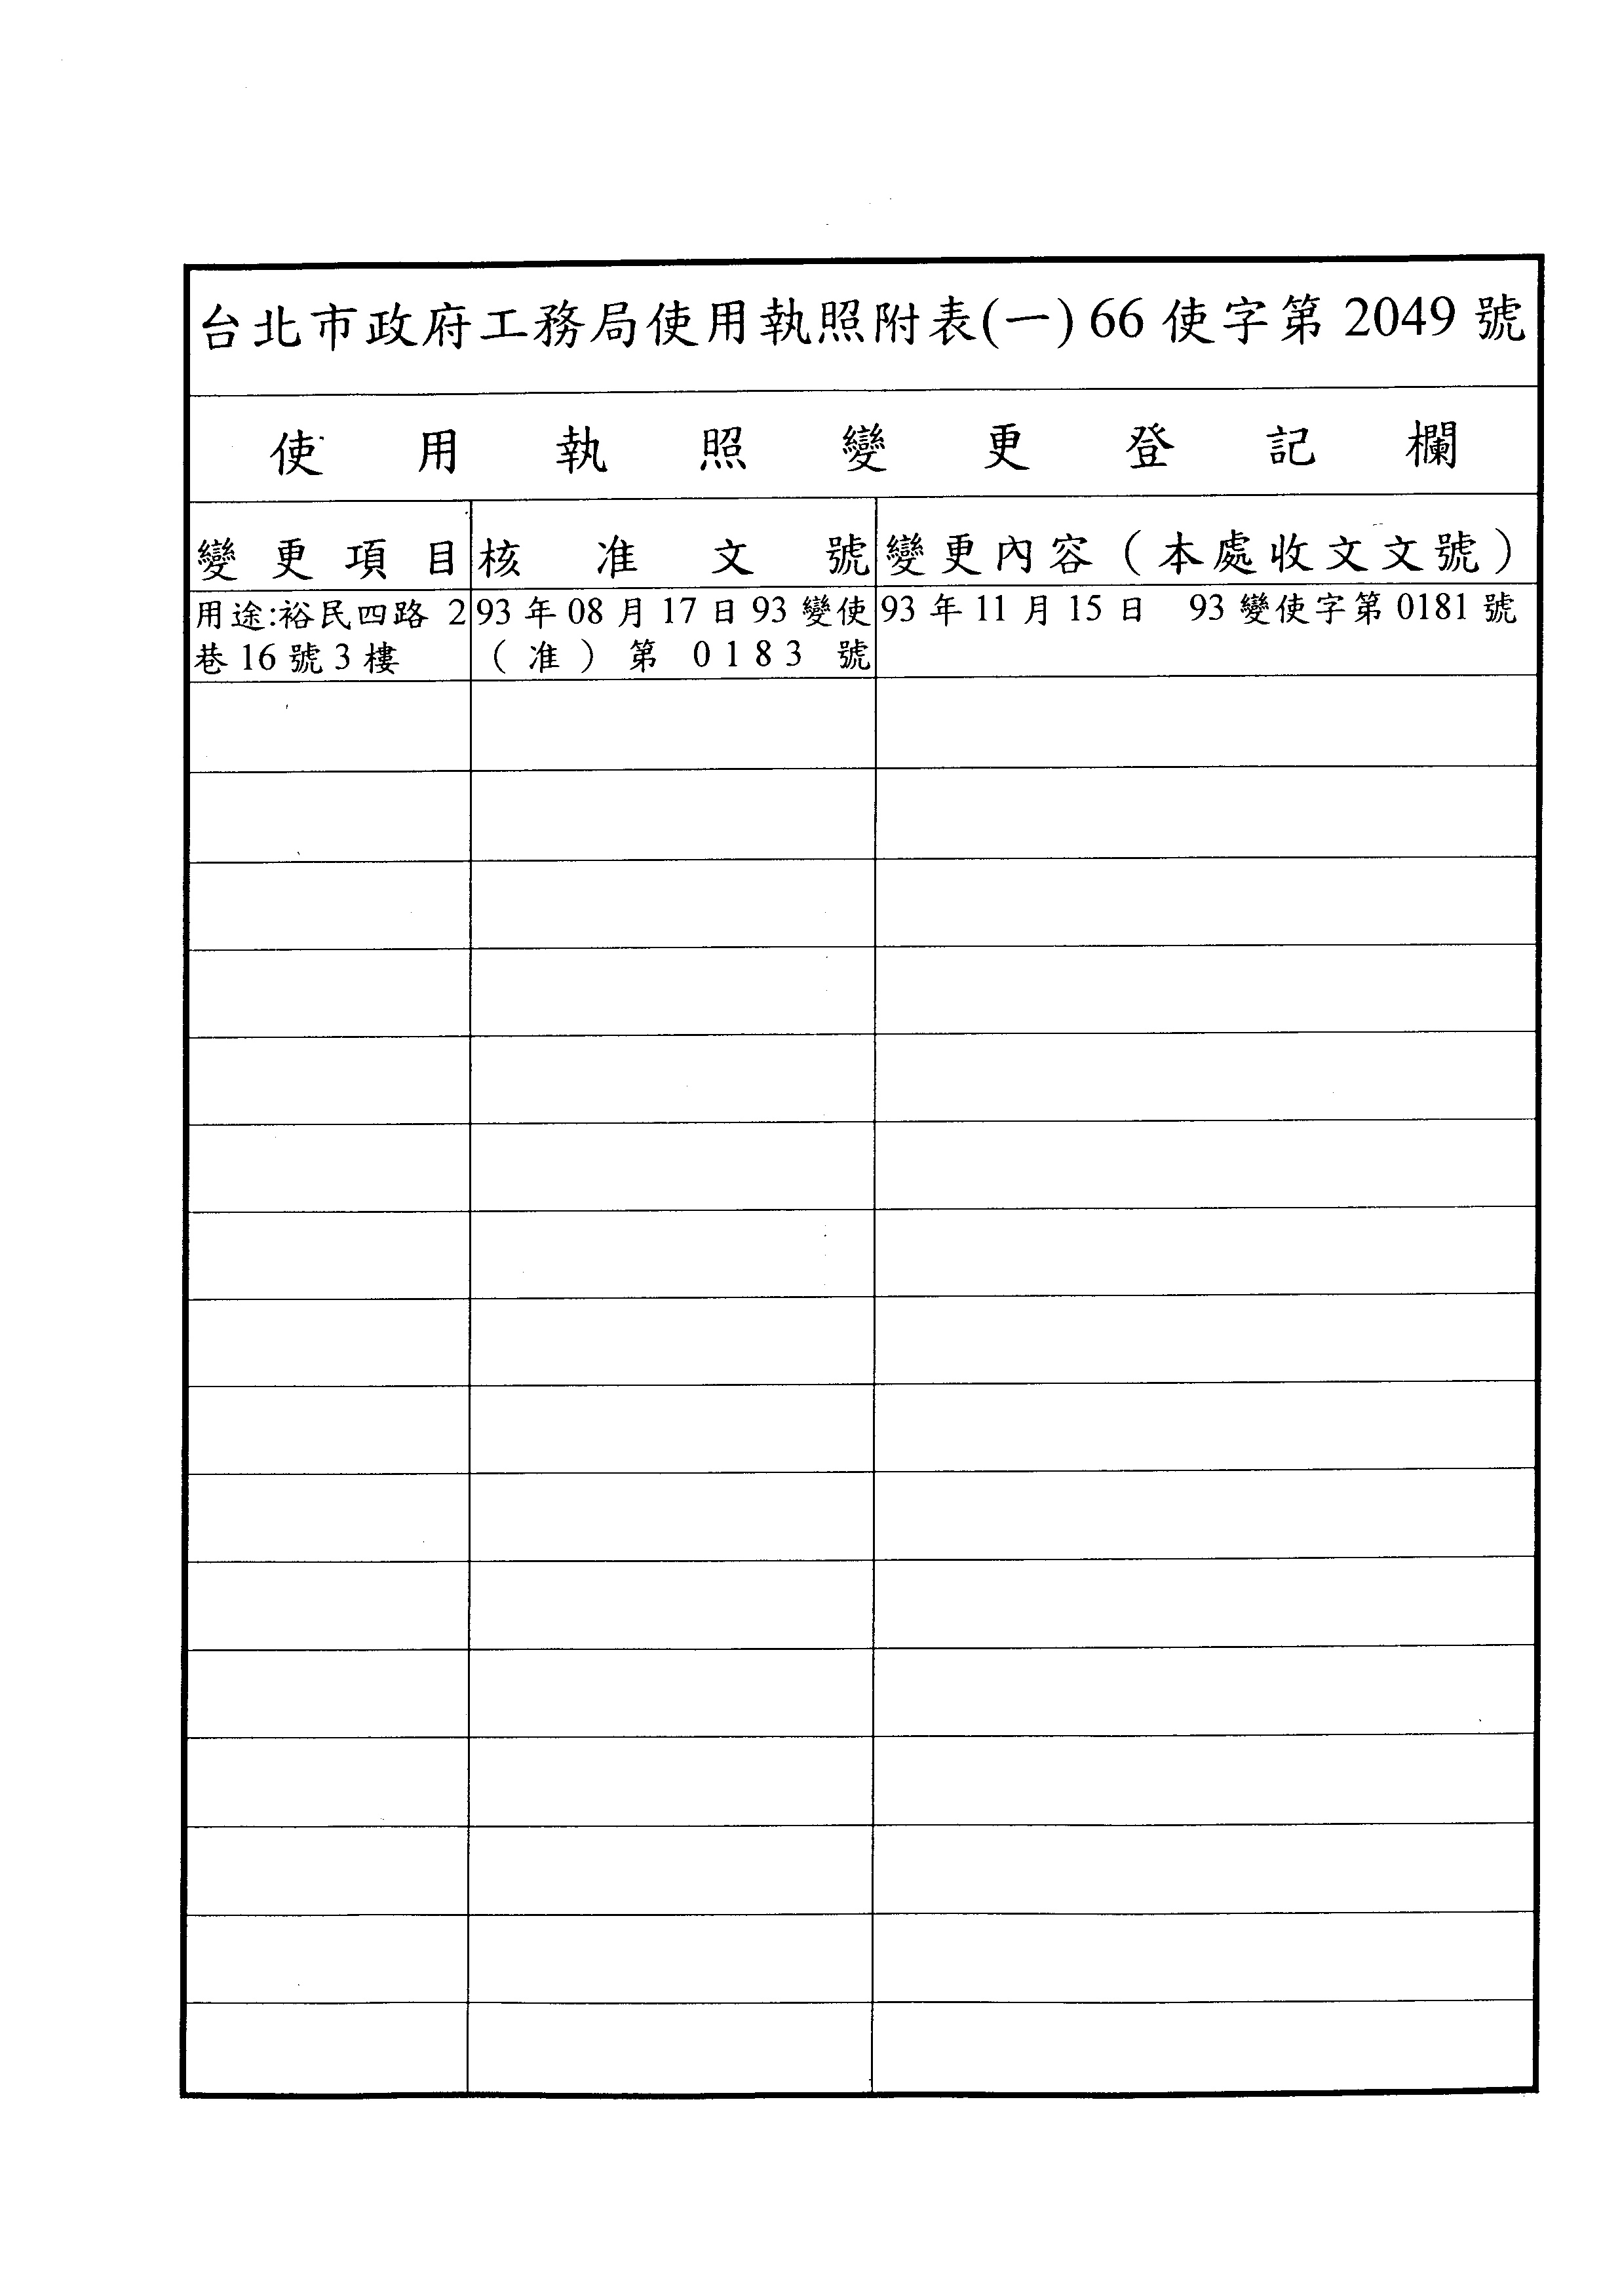 台北市政府工務局使用執照附表(一)66使字第2049號
使用執照變更登記欄
變更項目 核准文號 變更內容(本處收文文號)
用途:裕民四路 2 93年08月17日93變使 93年11月15日 93變使字第0181號
巷16號3樓 (准)第 0183 號